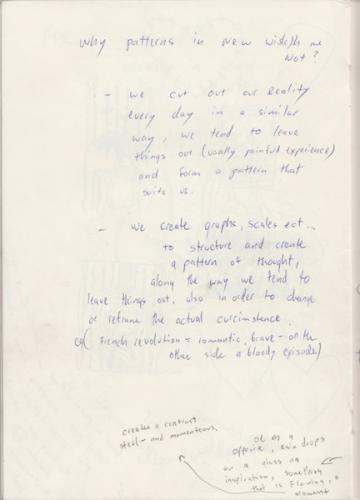 why patterns in new
not?
- we cut out our reality
every day in a similar
way, we tend to leave
things out (usually painful experience)
and form a pattern that
suits us.
- we create graphs, scales ect...
to structure and create
a pattern of thought,
along the way we tend to
leave things out, also in order to change
or reframe the actual curcimstence.
eg( French revolution = romantic, brave - on the
other side a bloody episode)
creates a contrast
steel - and momenteous,
or as a
opposite, rain drops
on a glass as
inspiration, something
that is flowing, a
moment